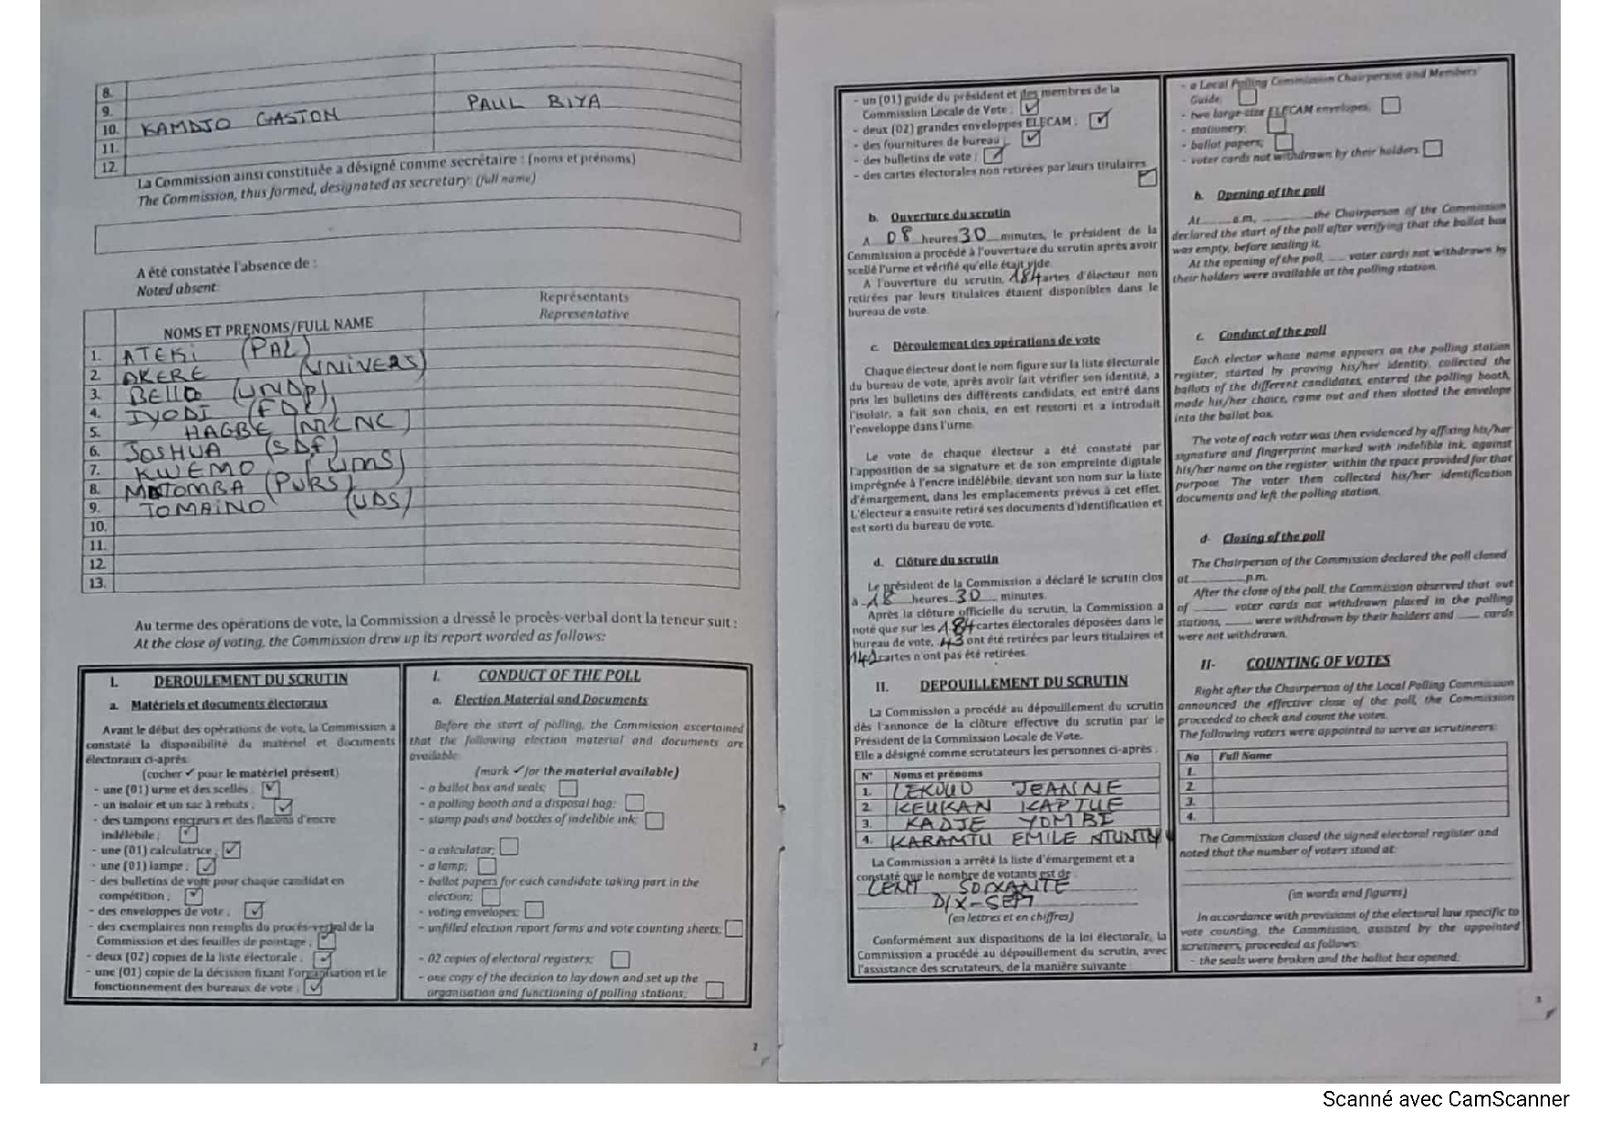 8.
9.
10. KAMDJO GASTON PAUL BIYA
11.
12.
La Commission ainsi constituée a désigné comme secrétaire : (noms et prénoms)
The Commission, thus formed, designated as secretary: (full name)
A été constatée l'absence de :
Noted absent:
NOMS ET PRENOMS/FULL NAME
Représentants
Representative
1. ATEKI (PAL)
2. AKERE (UNIVERS)
3. BELLO (UNDP)
4. IYODI (FDC)
5. HAGBE (MCNC)
6. JOSHUA (SDF)
7. KWEMO (UMS)
8. MATOMBA (PURS)
9. TOMAINO (UDS)
10.
11.
12.
13.
Au terme des opérations de vote, la Commission a dressé le procès-verbal dont la teneur suit :
At the close of voting, the Commission drew up its report worded as follows:
I. DEROULEMENT DU SCRUTIN
a. Matériels et documents électoraux
Avant le début des opérations de vote, la Commission a
constaté la disponibilité du matériel et documents
électoraux ci-après
(cocher ✓ pour le matériel présent)
- une (01) urne et des scellés ; ✓
- un isoloir et un sac à rebuts ; ✓
- des tampons encreurs et des flacons d'encre
indélébile ; ✓
- une (01) calculatrice ; ✓
- une (01) lampe ; ✓
- des bulletins de vote pour chaque candidat en
compétition ; ✓
- des enveloppes de vote ; ✓
- des exemplaires non remplis du procès-verbal de la
Commission et des feuilles de pointage ; ✓
- deux (02) copies de la liste électorale ; ✓
- une (01) copie de la décision fixant l'organisation et le
fonctionnement des bureaux de vote ; ✓
I. CONDUCT OF THE POLL
a. Election Material and Documents
Before the start of polling, the Commission ascertained
that the following election material and documents are
available
(mark ✓ for the material available)
- a ballot box and seals;
- a polling booth and a disposal bag;
- stamp pads and bottles of indelible ink;
- a calculator;
- a lamp;
- ballot papers for each candidate taking part in the
election;
- voting envelopes;
- unfilled election report forms and vote counting sheets;
- 02 copies of electoral registers;
- one copy of the decision to lay down and set up the
organisation and functioning of polling stations;
2
- un (01) guide du président et des membres de la
Commission Locale de Vote ; ✓
- deux (02) grandes enveloppes ELECAM ; ✓
- des fournitures de bureau ; ✓
- des bulletins de vote ; ✓
- des cartes électorales non retirées par leurs titulaires
b. Ouverture du scrutin
A 08 heures 30 minutes, le président de la
Commission a procédé à l'ouverture du scrutin après avoir
scellé l'urne et vérifié qu'elle était vide.
A l'ouverture du scrutin, 184 cartes d'électeur non
retirées par leurs titulaires étaient disponibles dans le
bureau de vote.
c. Déroulement des opérations de vote
Chaque électeur dont le nom figure sur la liste électorale
du bureau de vote, après avoir fait vérifier son identité, a
pris les bulletins des différents candidats, est entré dans
l'isoloir, a fait son choix, en est ressorti et a introduit
l'enveloppe dans l'urne.
Le vote de chaque électeur a été constaté par
l'apposition de sa signature et de son empreinte digitale
imprégnée à l'encre indélébile, devant son nom sur la liste
d'émargement, dans les emplacements prévus à cet effet.
L'électeur a ensuite retiré ses documents d'identification et
est sorti du bureau de vote.
d. Clôture du scrutin
Le président de la Commission a déclaré le scrutin clos
à 18 heures 30 minutes.
Après la clôture officielle du scrutin, la Commission a
noté que sur les 184 cartes électorales déposées dans le
bureau de vote, 43 ont été retirées par leurs titulaires et
141 cartes n'ont pas été retirées.
II. DEPOUILLEMENT DU SCRUTIN
La Commission a procédé au dépouillement du scrutin
dès l'annonce de la clôture effective du scrutin par le
Président de la Commission Locale de Vote.
Elle a désigné comme scrutateurs les personnes ci-après :
N° Noms et prénoms
1. LEKOUO JEANNE
2. KEUKAN KAPTUE
3. KADJE YOMBI
4. KARAMTU EMILE
La Commission a arrêté la liste d'émargement et a
constaté que le nombre de votants est de :
CENT SOIXANTE
DIX-SEPT
(en lettres et en chiffres)
Conformément aux dispositions de la loi électorale, la
Commission a procédé au dépouillement du scrutin, avec
l'assistance des scrutateurs, de la manière suivante
- a Local Polling Commission Chairperson and Members'
Guide;
- two large-size ELECAM envelopes;
- stationery;
- ballot papers;
- voter cards not withdrawn by their holders
b. Opening of the poll
At a.m, the Chairperson of the Commission
declared the start of the poll after verifying that the ballot box
was empty, before sealing it.
At the opening of the poll, voter cards not withdrawn by
their holders were available at the polling station.
c. Conduct of the poll
Each elector whose name appears on the polling station
register, started by proving his/her identity, collected the
ballots of the different candidates, entered the polling booth,
made his/her choice, came out and then slotted the envelope
into the ballot box.
The vote of each voter was then evidenced by affixing his/her
signature and fingerprint marked with indelible ink, against
his/her name on the register, within the space provided for that
purpose. The voter then collected his/her identification
documents and left the polling station.
d- Closing of the poll
The Chairperson of the Commission declared the poll closed
at p.m.
After the close of the poll, the Commission observed that out
of voter cards not withdrawn placed in the polling
stations, were withdrawn by their holders and cards
were not withdrawn.
II- COUNTING OF VOTES
Right after the Chairperson of the Local Polling Commission
announced the effective close of the poll, the Commission
proceeded to check and count the votes.
The following voters were appointed to serve as scrutineers:
No Full Name
1.
2.
3.
4.
The Commission closed the signed electoral register and
noted that the number of voters stood at:
(in words and figures)
In accordance with provisions of the electoral law specific to
vote counting, the Commission, assisted by the appointed
scrutineers, proceeded as follows:
- the seals were broken and the ballot box opened;
3
Scanné avec CamScanner